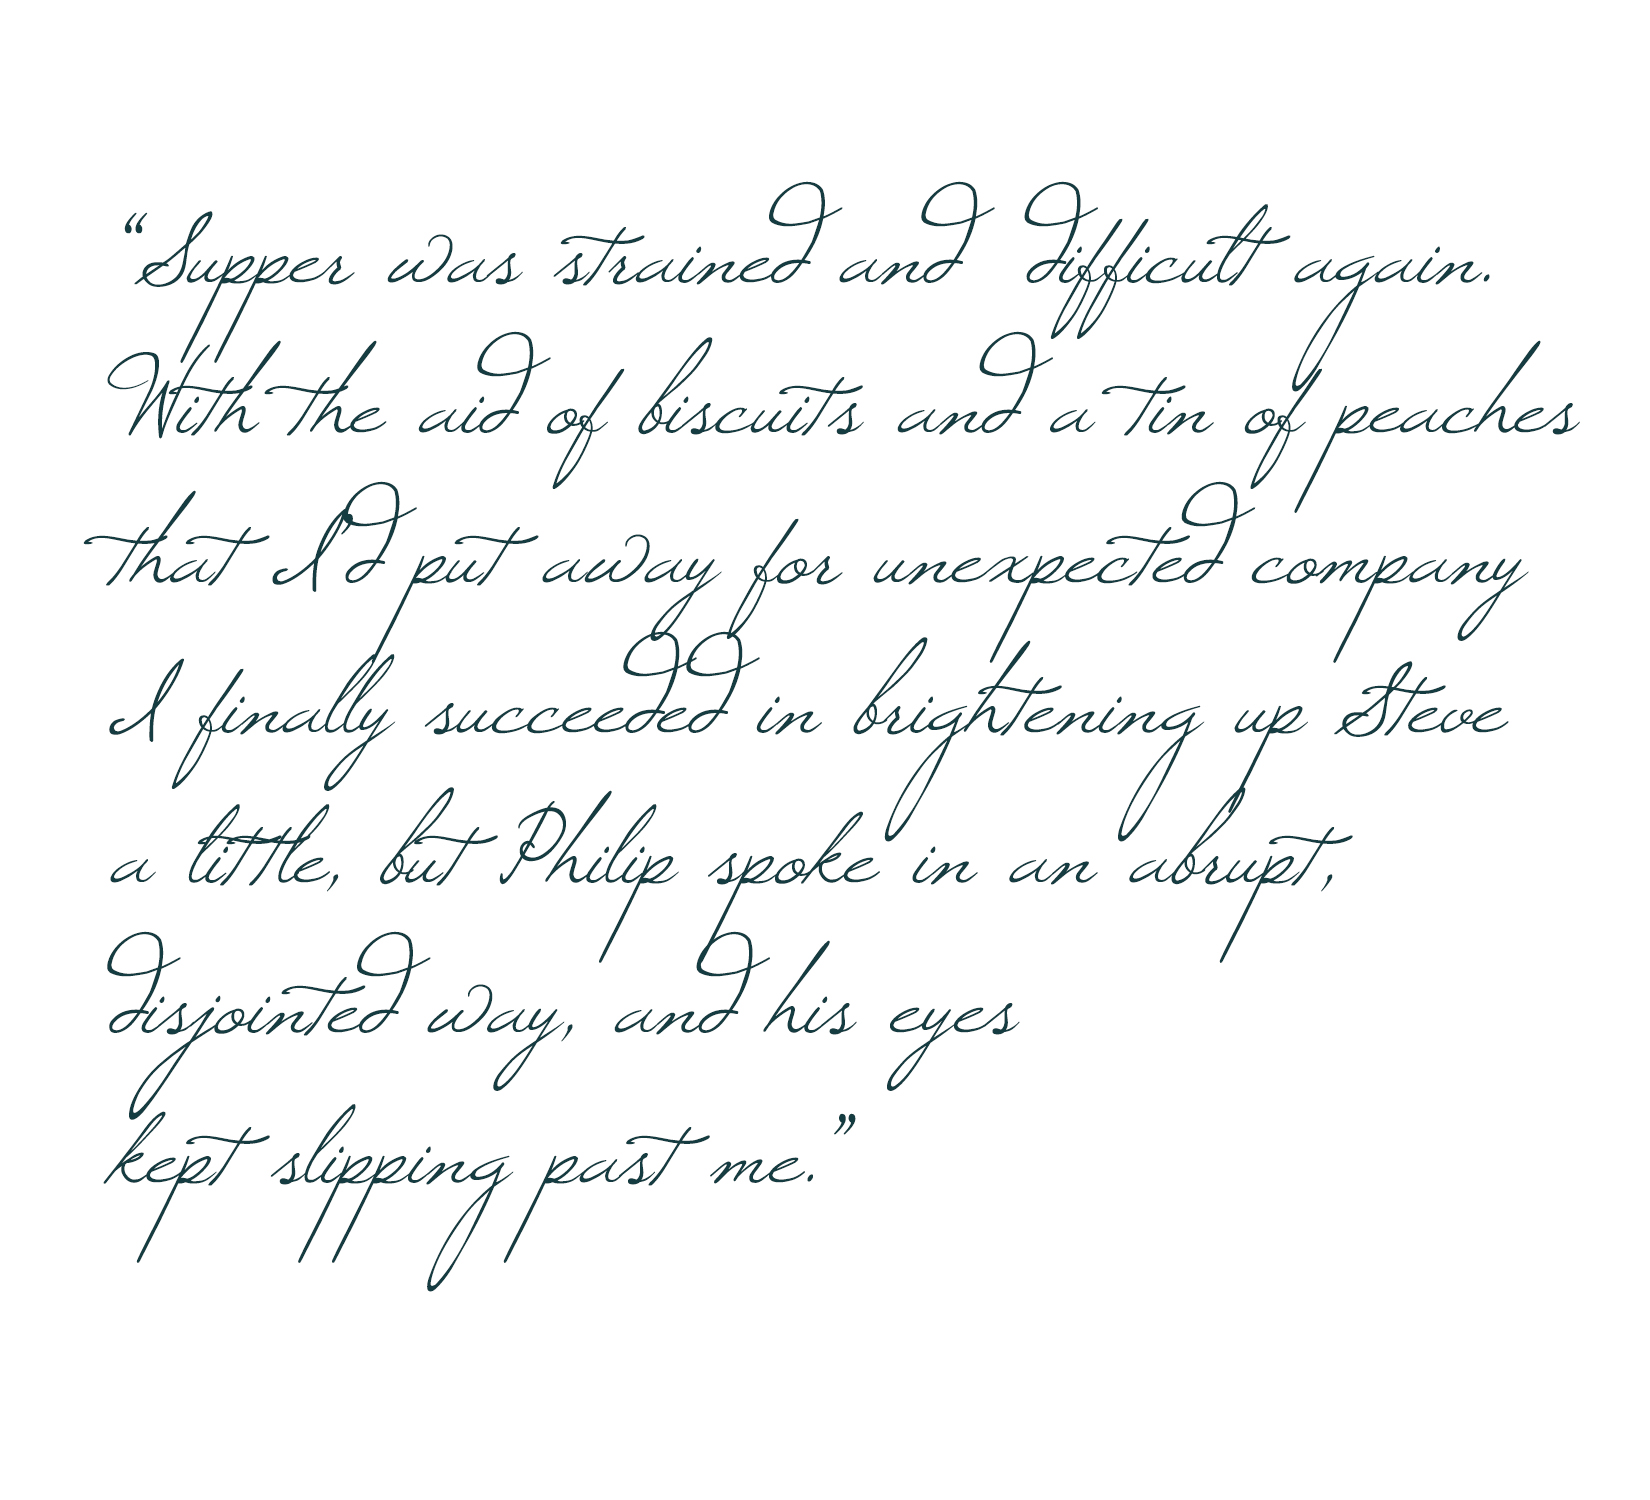 “Supper was strained and difficult again.
With the aid of biscuits and a tin of peaches
that I’d put away for unexpected company
I finally succeeded in brightening up Steve
a little, but Philip spoke in an abrupt,
disjointed way, and his eyes
kept slipping past me.”